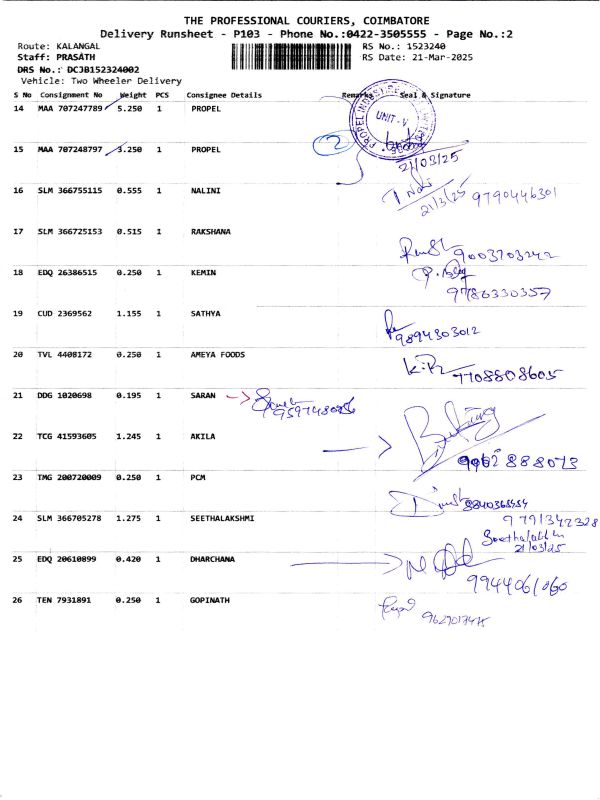 THE PROFESSIONAL COURIERS, COIMBATORE
Delivery Runsheet - P103 - Phone No.:0422-3505555 - Page No.:2
Route: KALANGAL RS No.: 1523240
Staff: PRASATH RS Date: 21-Mar-2025
DRS No.: DCJB152324002
Vehicle: Two Wheeler Delivery
S No Consignment No Weight PCS Consignee Details Remarks Seal & Signature
14 MAA 707247789 5.250 1 PROPEL
UNIT-V
2
15 MAA 707248797 3.250 1 PROPEL
21/03/25
16 SLM 366755115 0.555 1 NALINI
21/3/25 9790446301
17 SLM 366725153 0.515 1 RAKSHANA
9003703242
18 EDQ 26386515 0.250 1 KEMIN
9786330357
19 CUD 2369562 1.155 1 SATHYA
9894303012
20 TVL 4408172 0.250 1 AMEYA FOODS
7708808605
21 DDG 1020698 0.195 1 SARAN
22 TCG 41593605 1.245 1 AKILA
23 TMG 200720009 0.250 1 PCM
24 SLM 366705278 1.275 1 SEETHALAKSHMI
9791342328
21/03/25
25 EDQ 20610899 0.420 1 DHARCHANA
9944061060
26 TEN 7931891 0.250 1 GOPINATH